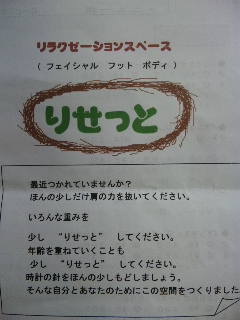 リラクゼーションスペース
( フェイシャル　フット　ボディ )
りせっと
最近つかれていませんか？
ほんの少しだけ肩の力を抜いてください。
いろんな重みを
少し　“りせっと”　してください。
年齢を重ねていくことも
少し　“りせっと”　してください。
時計の針をほんの少しもどしましょう。
そんな自分とあなたのためにこの空間をつくりました